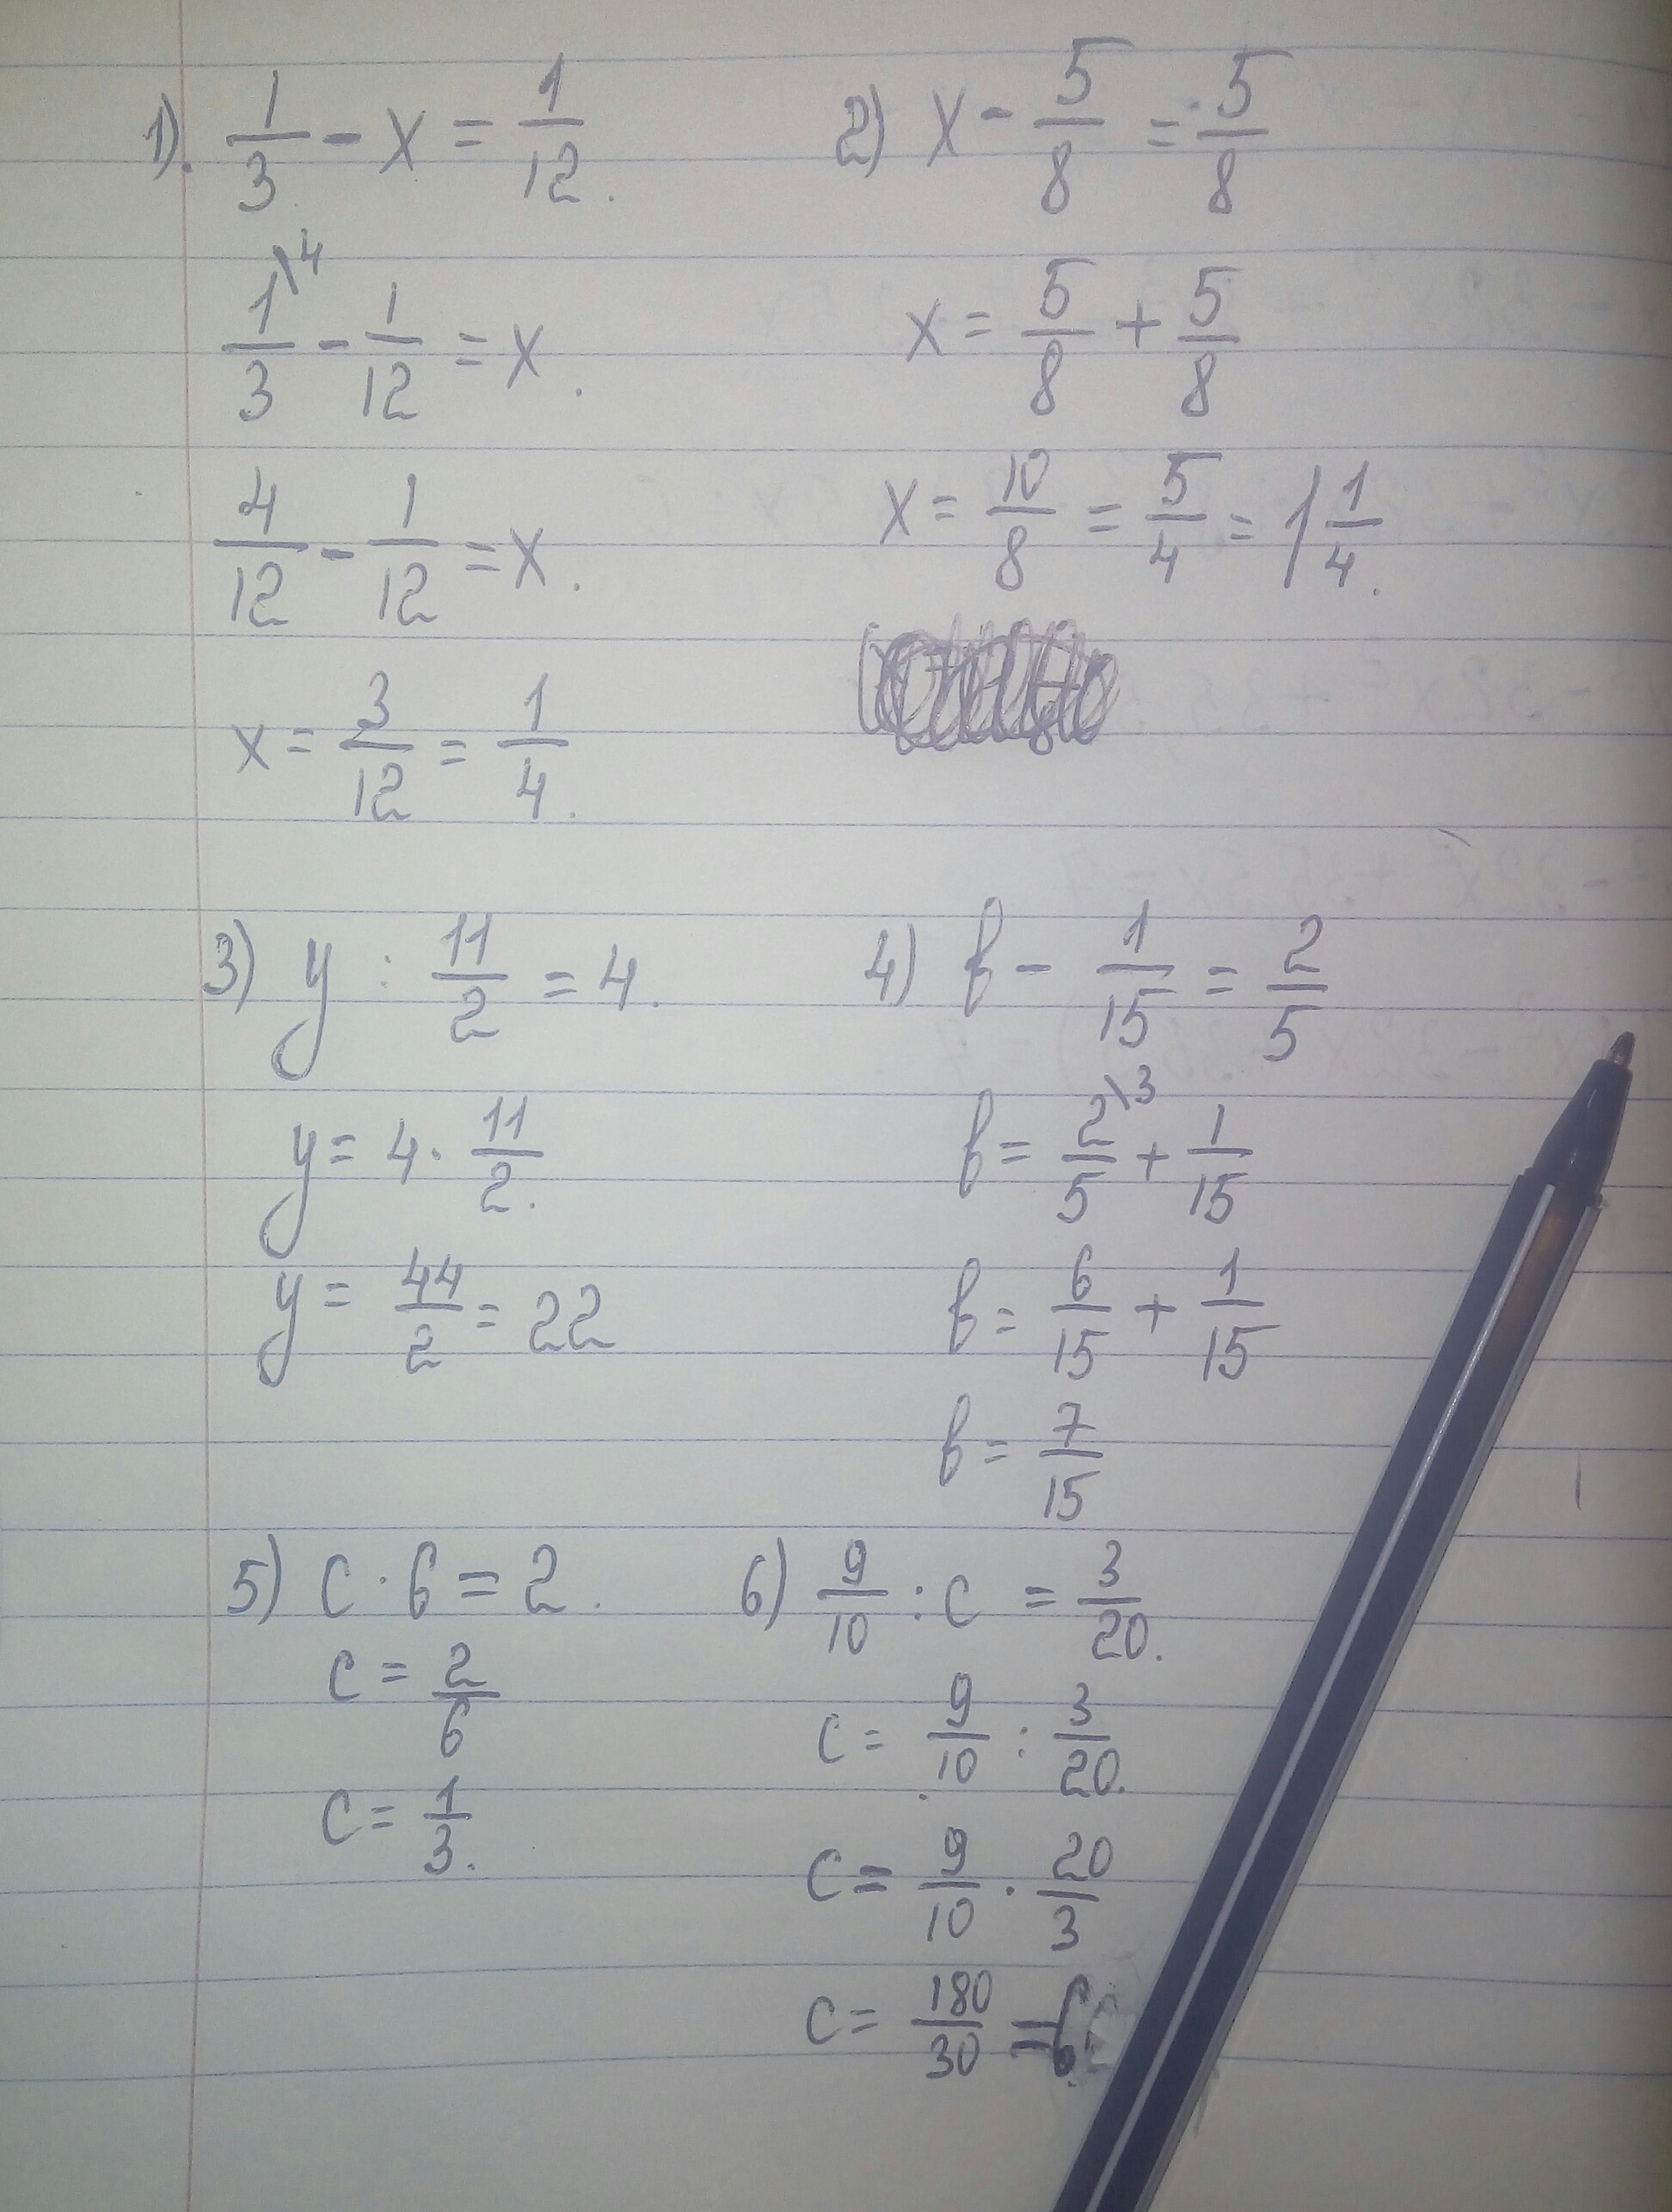 1). 1/3 - x = 1/12.
1\4/3 - 1/12 = x.
4/12 - 1/12 = x.
x = 3/12 = 1/4.
2) x - 5/8 = 5/8
x = 5/8 + 5/8
x = 10/8 = 5/4 = 1 1/4.
3) y : 11/2 = 4.
y = 4 · 11/2.
y = 44/2 = 22
4) в - 1/15 = 2/5
в = 2\3/5 + 1/15
в = 6/15 + 1/15
в = 7/15
5) c · 6 = 2.
c = 2/6
c = 1/3.
6) 9/10 : c = 3/20.
c = 9/10 : 3/20.
c = 9/10 · 20/3
c = 180/30 = 6